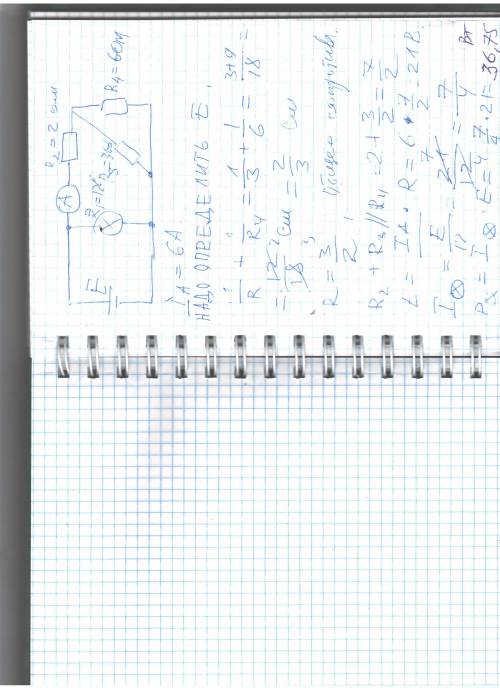 R₂ = 2 ом
A
R₄ = 6 ом
R₁ = 12
R₃ = 3
E
I_A = 6А
НАДО ОПРЕДЕЛИТЬ E.
1/R + 1/R₄ = 1/3 + 1/6 = 3+9/18 =
= 12/18 см = 2/3 см
R = 3/2; Общее
R₂ + R₃//R₄ = 2 + 3/2 = 7/2
E = I_A · R = 6 · 7/2 = 21В.
I⊗ = E/12 = 21/12 = 7/4
P⊗ = I⊗ · E = 7/4 · 21 = 36,75 Вт